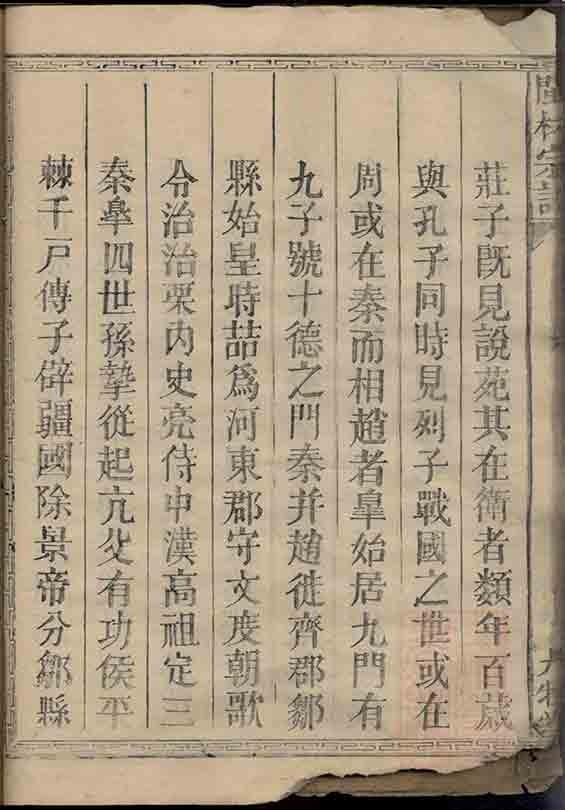 莊子旣見說苑其在衛者類年百歲
與孔子同時見列子戰國之世或在
周或在秦而相趙者皐始居九門有
九子號十德之門秦并趙徙齊郡鄒
縣始皇時喆爲河東郡守文度朝歌
令治治粟内史亮侍中漢高祖定三
秦皐四世孫摯從起亢父有功侯平
棘千戸傳子辟疆國除景帝分鄒縣